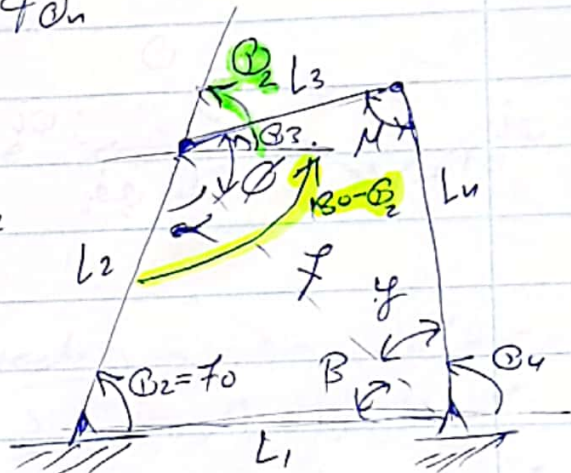 θ₂
L3
θ3
M
φ
180-θ₂
α
L4
L2
f
y
θ2=70
B
θ4
L1